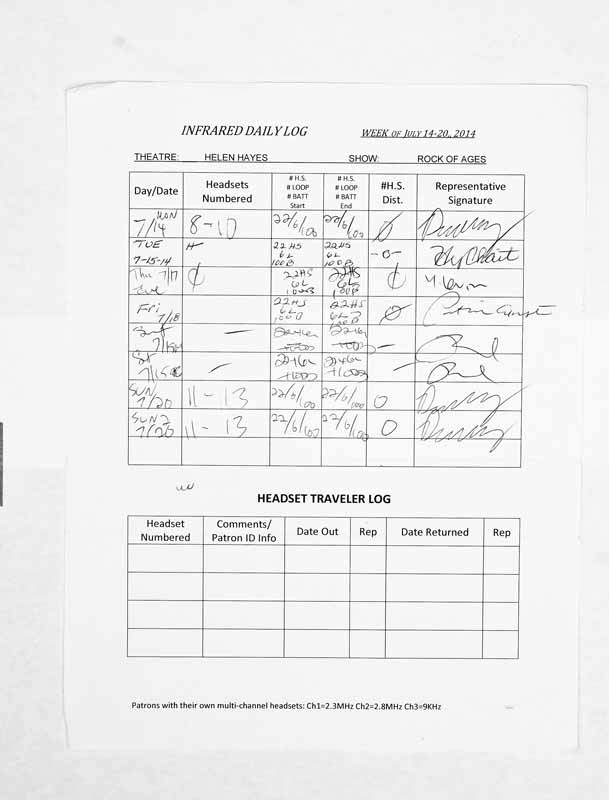 INFRARED DAILY LOG WEEK OF JULY 14-20,, 2014
THEATRE: HELEN HAYES SHOW: ROCK OF AGES
Day/Date Headsets Numbered # H.S. # LOOP # BATT Start # H.S. # LOOP # BATT End #H.S. Dist. Representative Signature
MON 7/14 8-10 22/6/100 22/6/100 0
TUE 7-15-14 22HS 6L 100B 22HS 6L 100B -0-
Thu 7/17 Eve 22HS 6L 100B 22HS 6L 100B
Fri 7/18 22HS 6L 100B 22HS 6L 100B 0
7/19
SUN 7/20 11-13 22/6/100 22/6/100 0
SUN 2 7/20 11-13 22/6/100 22/6/100 0
HEADSET TRAVELER LOG
Headset Numbered Comments/ Patron ID Info Date Out Rep Date Returned Rep
Patrons with their own multi-channel headsets: Ch1=2.3MHz Ch2=2.8MHz Ch3=9KHz